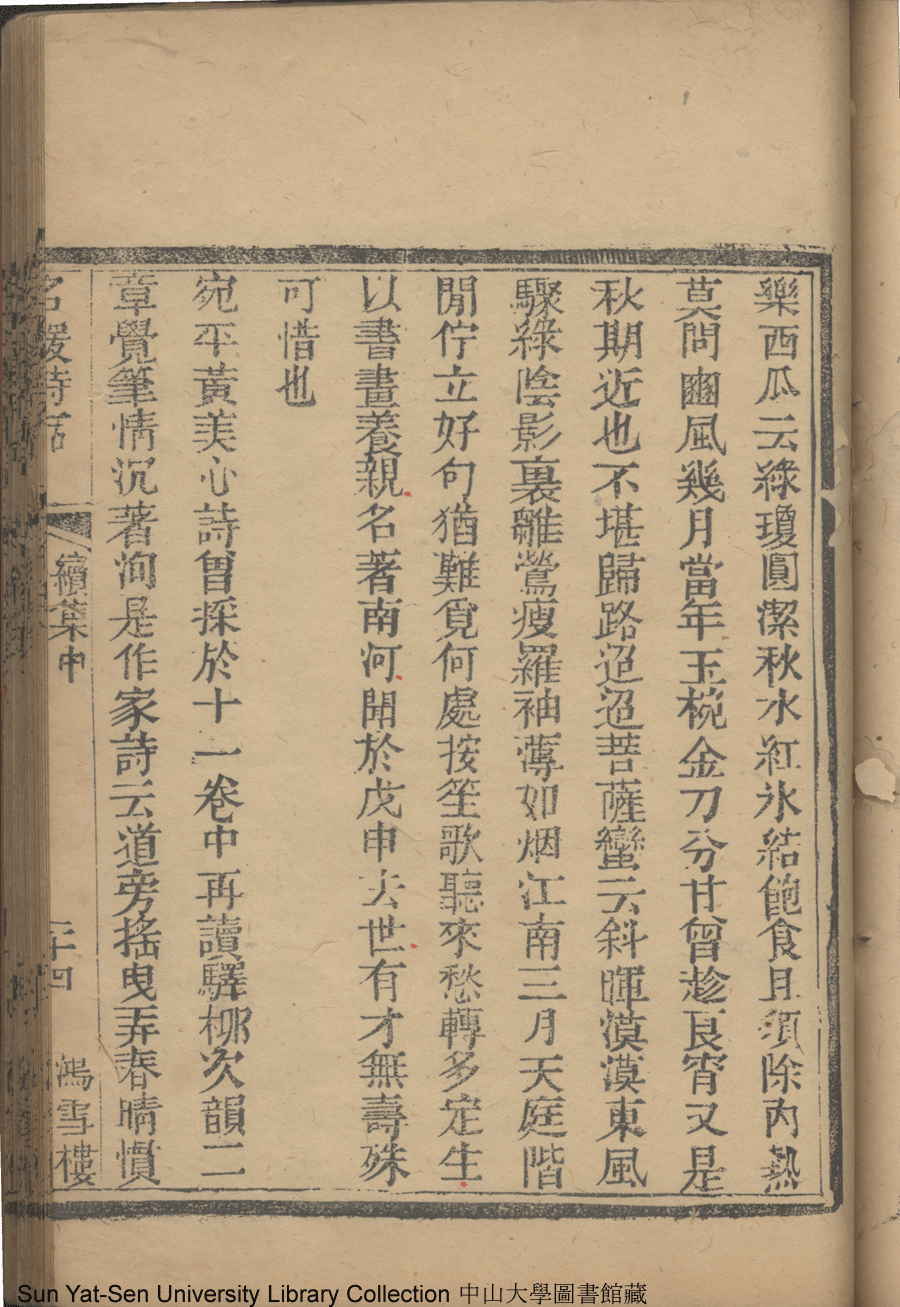 樂西瓜云綠瓊圓潔秋水紅氷結飽食且須除內熱
莫問豳風幾月當年玉椀金刀分甘曾趁良宵又是
秋期近也不堪歸路迢迢菩薩蠻云斜暉漠漠東風
驟綠陰影裏雛鶯瘦羅袖薄如烟江南三月天庭階
閒佇立好句猶難覓何處按笙歌聽來愁轉多定生
以書畫養親名著南河開於戊申去世有才無壽殊
可惜也
宛平黃美心詩曾採於十一卷中再讀驛柳次韻二
章覺筆情沉著洵是作家詩云道旁搖曳弄春晴慣
名媛詩話 續葉中 二十四 鴻雪樓
Sun Yat-Sen University Library Collection 中山大學圖書館藏